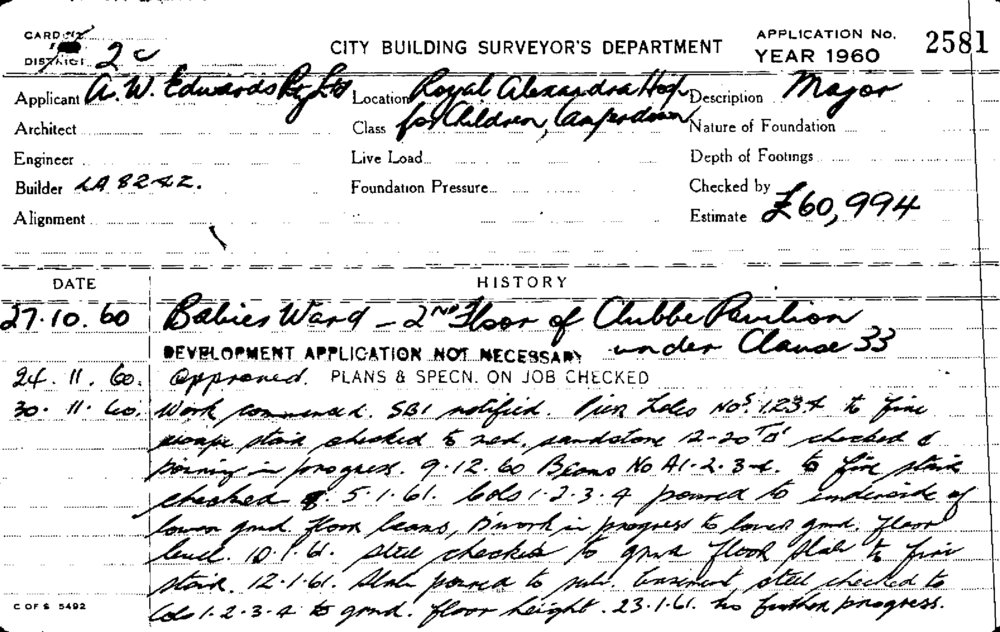 CARD
CITY BUILDING SURVEYOR'S DEPARTMENT
APPLICATION No.
YEAR 1960
2581
DISTRICT 2C
Applicant A. W. Edwards Pty Ltd
Location Royal Alexandra Hosp
Description Major
Architect
Class for Children, Camperdown
Nature of Foundation
Engineer
Live Load
Depth of Footings
Builder LA 8242.
Foundation Pressure
Checked by
Alignment
Estimate £60,994
DATE
HISTORY
27.10.60 Babies Ward - 2ND Floor of Clubbe Pavilion
DEVELOPMENT APPLICATION NOT NECESSARY under Clause 33
24.11.60. Approved. PLANS & SPECN. ON JOB CHECKED
30.11.60. Work commenced. SBI notified. Pier holes Nos. 1234 to fire
escape stair checked to red. sandstone checked &
pouring in progress. 9.12.60 Beams No A1.2.3.4. to fire stair
checked 5.1.61. Cols 1.2.3.4 poured to underside of
lower grnd. floor beams, B'work in progress to lower grnd. floor
level. 10.1.61. Steel checked to grnd floor slab to fire
stair. 12.1.61. Slab poured to Basement steel checked to
Cols 1.2.3.4 to grnd. floor height. 23.1.61. No further progress.
C OF S 5492